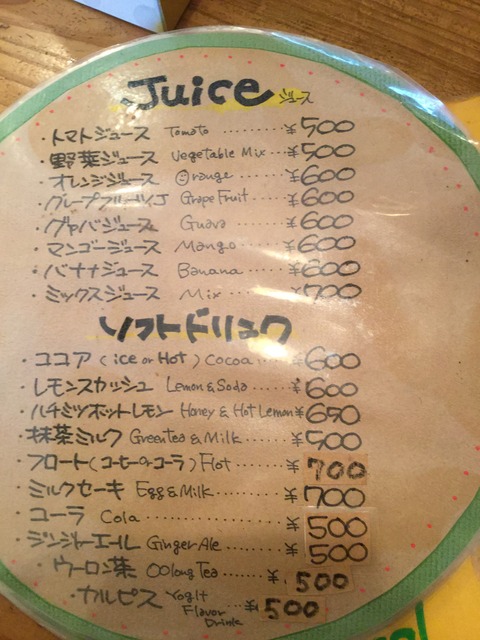 Juice ジュース
・トマトジュース Tomato ........ ¥500
・野菜ジュース Vegetable Mix ... ¥500
・オレンジジュース Orange ...... ¥600
・グレープフルーツJ Grape Fruit .... ¥600
・グァバジュース Guava ...... ¥600
・マンゴージュース Mango ..... ¥600
・バナナジュース Banana ..... ¥600
・ミックスジュース Mix ....... ¥700
ソフトドリンク
・ココア (ice or Hot) Cocoa .... ¥600
・レモンスカッシュ Lemon & Soda ..... ¥600
・ハチミツホットレモン Honey & Hot Lemon ¥650
・抹茶ミルク GreenTea & Milk ..... ¥500
・フロート(コーヒーorコーラ) Flot ..... ¥700
・ミルクセーキ Egg & Milk ....... ¥700
・コーラ Cola ............ ¥500
・ジンジャーエール Ginger Ale ....... ¥500
・ウーロン茶 OOlong Tea ...... ¥500
・カルピス Yoglt Flavor Drink ... ¥500